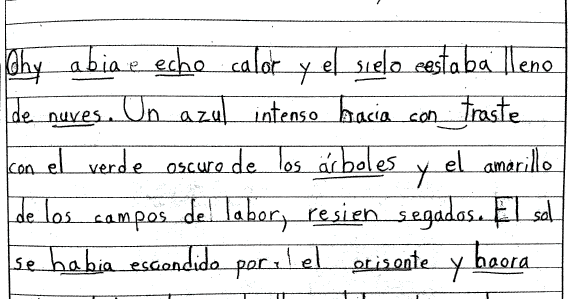 Ohy abia e echo calor y el sielo eestaba lleno
de nuves. Un azul intenso hacia con traste
con el verde oscuro de los árboles y el amarillo
de los campos del labor, resien segados. El sol
se habia escondido por el orisonte y haora